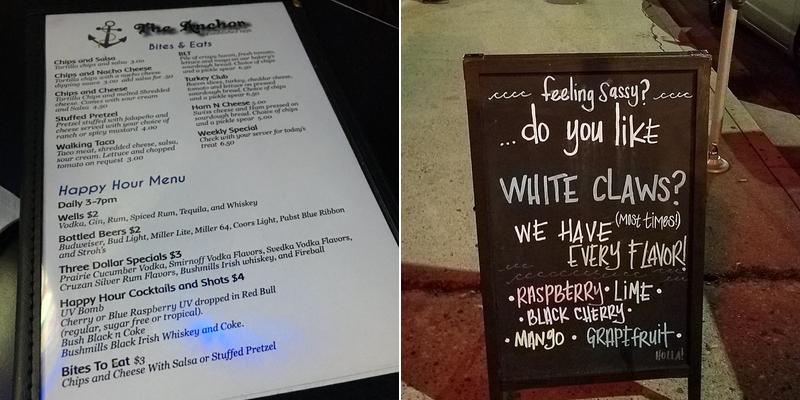 The Anchor
Bites & Eats
Chips and Salsa
Tortilla chips and salsa 3.00
Chips and Nacho Cheese
Tortilla chips with a nacho cheese
dipping sauce 3.00 add salsa for .50
Chips and Cheese
Tortilla Chips and melted Shredded
cheese. Comes with sour cream
and Salsa 4.50
Stuffed Pretzel
Pretzel stuffed with jalapeño and
cheese served with your choice of
ranch or spicy mustard 4.00
Walking Taco
Taco meat, shredded cheese, salsa,
sour cream. Lettuce and chopped
tomato on request 3.00
BLT
Pile of crispy bacon, fresh tomato,
lettuce and mayo on our bakery's
sourdough bread. Choice of chips
and a pickle spear 6.50
Turkey Club
Bacon slices, turkey, cheddar cheese,
tomato and lettuce on pressed
sourdough bread. Choice of chips
and a pickle spear 6.50
Ham N Cheese 5.00
Swiss cheese and Ham pressed on
sourdough bread. Choice of chips
and a pickle spear 5.00
Weekly Special
Check with your server for today's
treat 6.50
Happy Hour Menu
Daily 3-7pm
Wells $2
Vodka, Gin, Rum, Spiced Rum, Tequila, and Whiskey
Bottled Beers $2
Budweiser, Bud Light, Miller Lite, Miller 64, Coors Light, Pabst Blue Ribbon
and Stroh's
Three Dollar Specials $3
Prairie Cucumber Vodka, Smirnoff Vodka Flavors, Svedka Vodka Flavors,
Cruzan Silver Rum Flavors, Bushmills Irish whiskey, and Fireball
Happy Hour Cocktails and Shots $4
UV Bomb
Cherry or Blue Raspberry UV dropped in Red Bull
(regular, sugar free or tropical).
Bush Black n Coke
Bushmills Black Irish Whiskey and Coke.
Bites To Eat $3
Chips and Cheese With Salsa or Stuffed Pretzel
feeling Sassy?
...do you like
WHITE CLAWS?
WE HAVE (MOST TIMES!)
EVERY FLAVOR!
• RASPBERRY • LIME •
• BLACK CHERRY •
• MANGO • GRAPEFRUIT •
HOLLA!